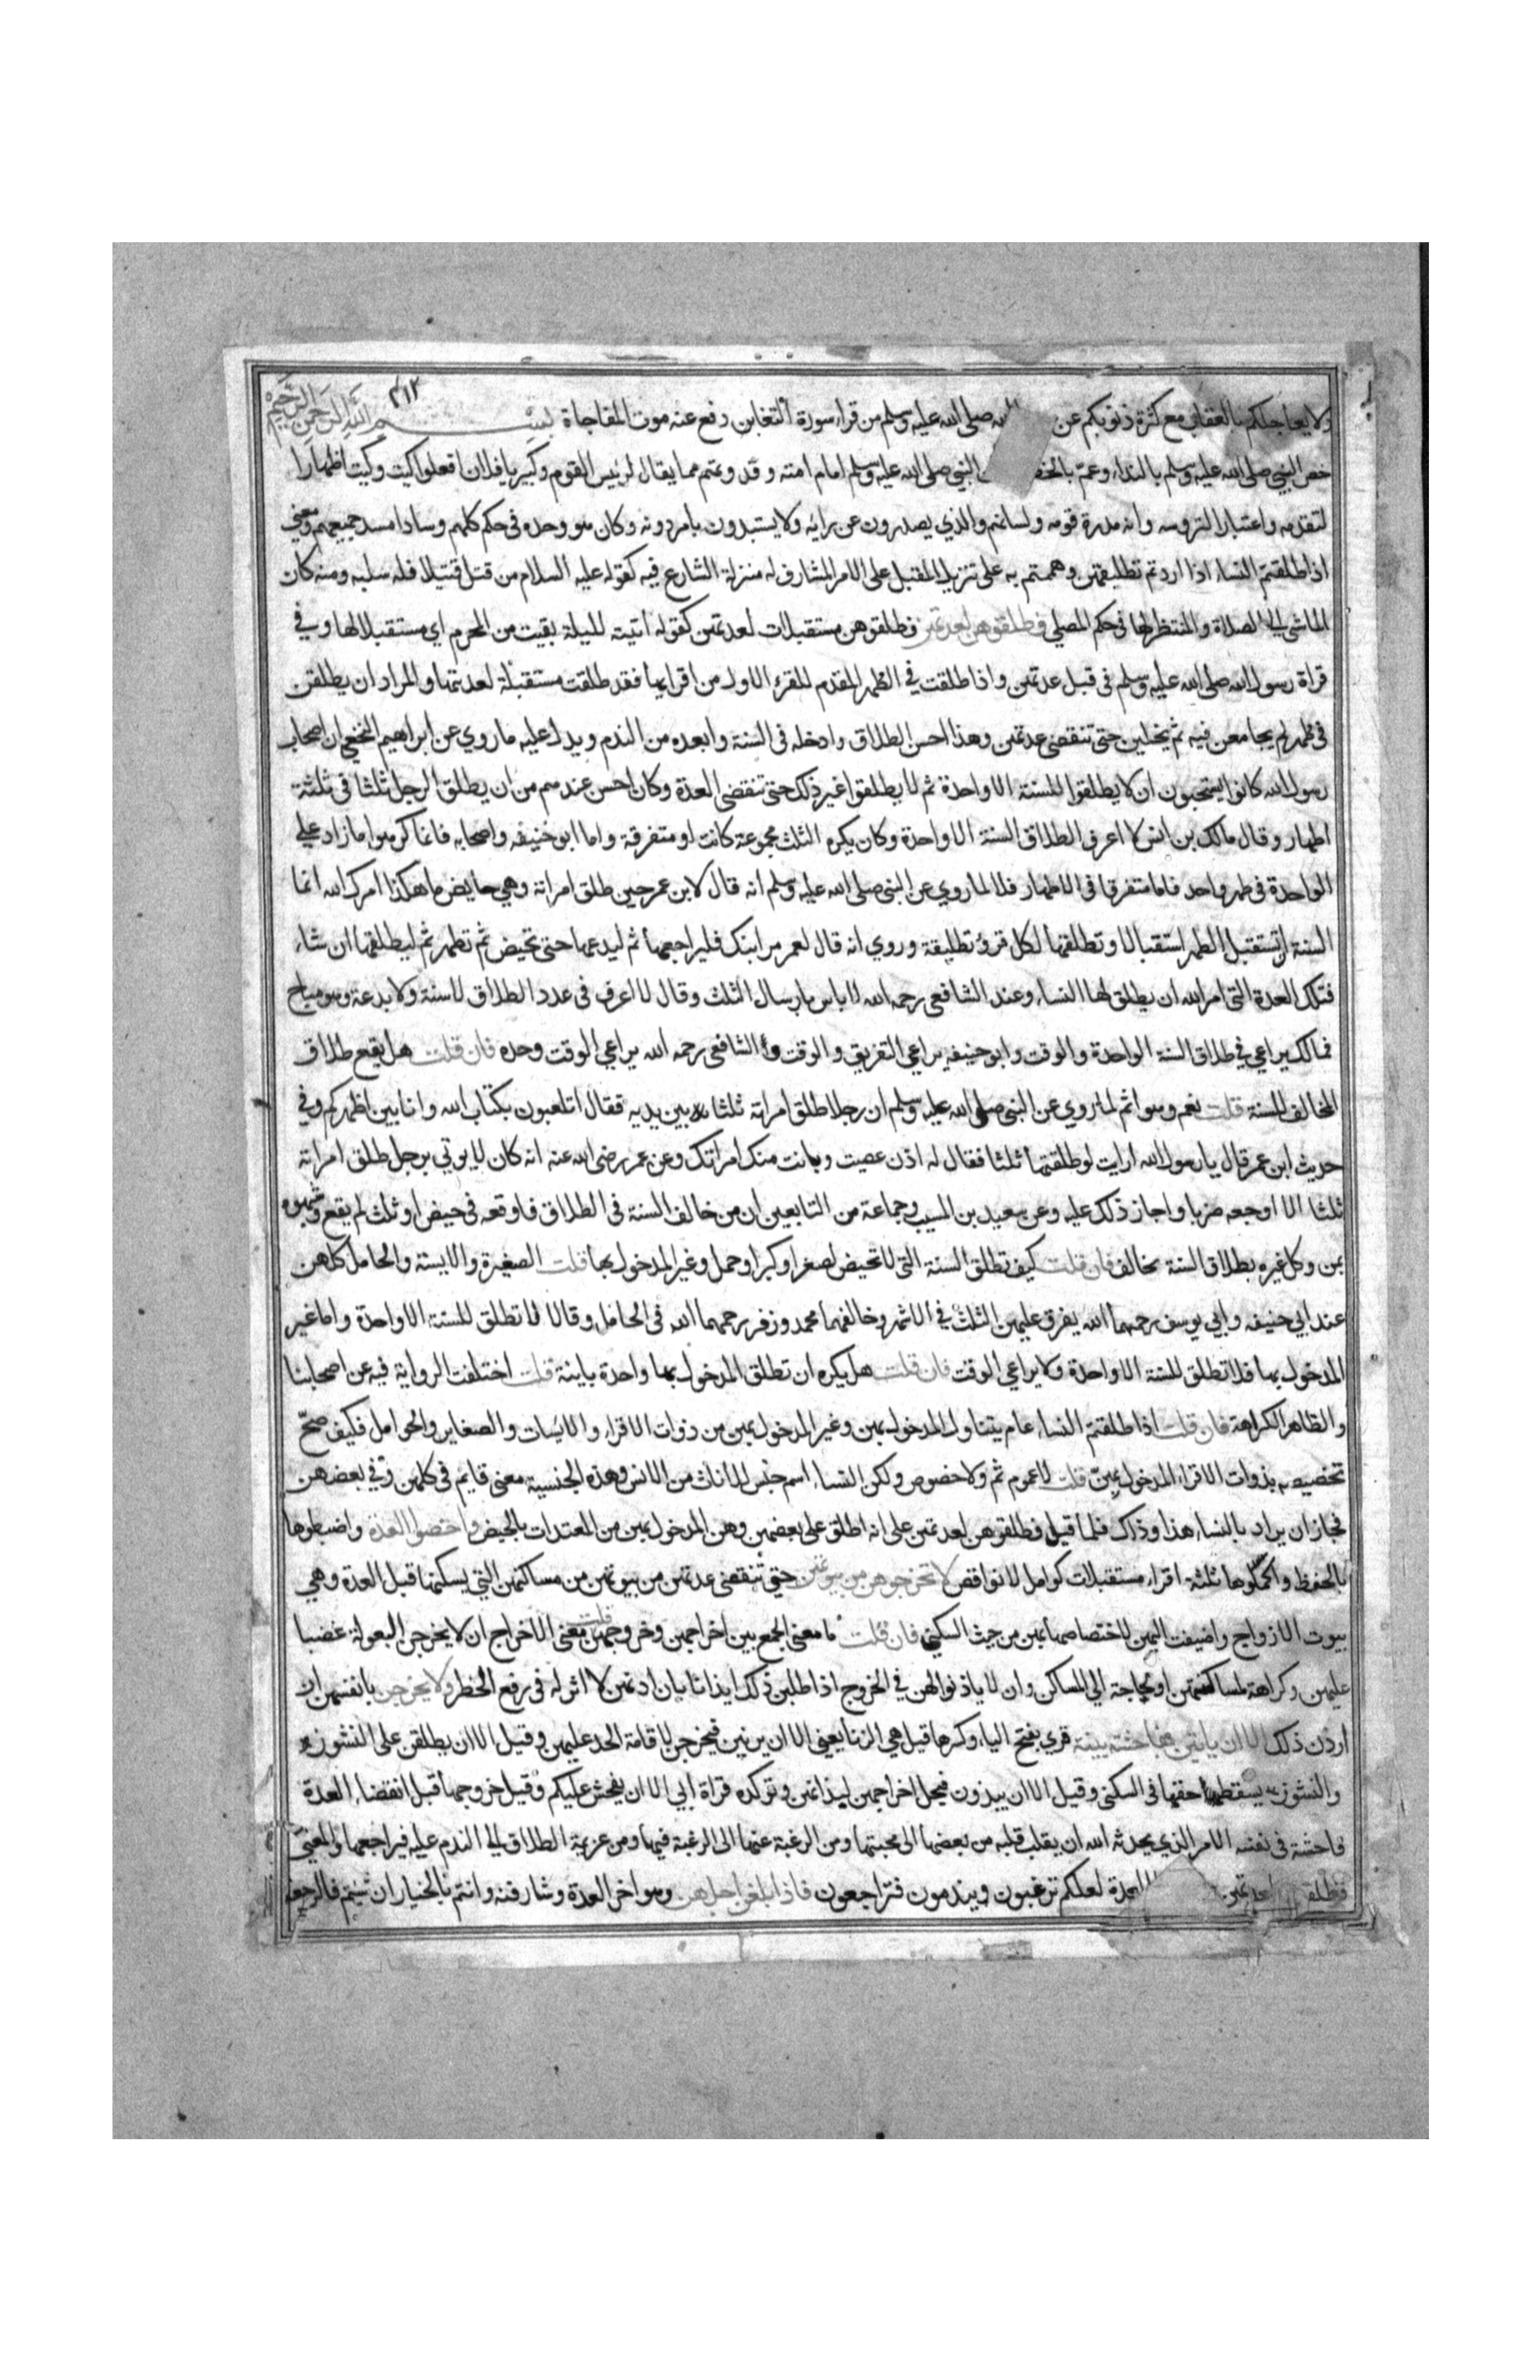 ولا يعاجلكم بالعقاب مع كثرة ذنوبكم عن الله صلى الله عليه وسلم من قراء سورة التغابن دفع عنه موت المفاجاة بسم الله الرحمن الرحيم ٤١٢
خص النبي صلى الله عليه وسلم بالنداء وعم بالخط النبي صلى الله عليه وسلم امام امته وقدوتهم مما يقال لرييس القوم وكبيرهم يا فلان افعلوا كيت وكيت اظهارا
لتقدمه واعتبارا لترؤسه وانه مدرة قومه ولسانهم والذي يصدرون عن رايه ولا يستبدون بامر دونه وكان هو وحده في حكم كلهم وسادا مسد جميعهم ومعنى
اذا طلقتم النساء اذا اردتم تطليقهن وهممتم به على تنزيل المقبل على الامر المشارف له منزلة الشارع فيه كقوله عليه السلام من قتل قتيلا فله سلبه ومنه كان
الماشي الى الصلاة والمنتظر لها في حكم المصلي فطلقوهن لعدتهن فطلقوهن مستقبلات لعدتهن كقوله اتيته لليلة بقيت من المحرم اي مستقبلا لها وفي
قراة رسول الله صلى الله عليه وسلم في قبل عدتهن واذا طلقت في الطهر المقدم للقرء الاول من اقرايها فقد طلقت مستقبلة لعدتها والمراد ان يطلقن
في طهر لم يجامعن فيه ثم يخلين حتى تنقضي عدتهن وهذا احسن الطلاق وادخله في السنة وابعده من الندم ويدل عليه ما روي عن ابراهيم النخعي ان اصحاب
رسول الله كانوا يستحبون ان لا يطلقوا للسنة الا واحدة ثم لا يطلقوا غير ذلك حتى تنقضي العدة وكان احسن عندهم من ان يطلق الرجل ثلثا في ثلثة
اطهار وقال مالك بن انس لا اعرف الطلاق السنة الا واحدة وكان يكره الثلث مجموعة كانت او متفرقة واما ابو حنيفه واصحابه فانما كرهوا ما زاد على
الواحدة في طهر واحد فاما متفرقا في الاطهار فلا لما روي عن النبي صلى الله عليه وسلم انه قال لابن عمر حين طلق امراته وهي حايض ما هكذا امرك الله انما
السنة ان تستقبل الطهر استقبالا وتطلقها لكل قرؤ تطليقة وروي انه قال لعمر مر ابنك فليراجعها ثم ليدعها حتى تحيض ثم تطهر ثم ليطلقها ان شاء
فتلك العدة التي امر الله ان يطلق لها النساء وعند الشافعي رحمه الله لا باس بارسال الثلث وقال لا اعرف في عدد الطلاق لا سنة ولا بدعة وهو مباح
فمالك يراعي في طلاق السنة الواحدة والوقت وابو حنيفه يراعي التفريق والوقت والشافعي رحمه الله يراعي الوقت وحده فان قلت هل يقع طلاق
المخالف للسنة قلت نعم وهو اثم لما روي عن النبي صلى الله عليه وسلم ان رجلا طلق امراته ثلثا بين يديه فقال اتلعبون بكتاب الله وانا بين اظهركم وفي
حديث ابن عمر قال يا رسول الله ارايت لو طلقتها ثلثا فقال له اذن عصيت وبانت منك امراتك وعن عمر رضي الله عنه انه كان لا يوتي برجل طلق امراته
ثلثا الا اوجعه ضربا واجاز ذلك عليه وعن سعيد بن المسيب وجماعة من التابعين ان من خالف السنة في الطلاق فاوقعه في حيض او ثلث لم يقع وشبهوه
بمن وكل غيره بطلاق السنة مخالف فان قلت كيف تطلق السنة التي لا تحيض لصغر او كبر او حمل وغير المدخول بها قلت الصغيرة والايسة والحامل كلهن
عند ابي حنيفه وابي يوسف رحمهما الله يفرق عليهن الثلث في الاشهر وخالفهما محمد وزفر رحمهما الله في الحامل وقالا لا تطلق للسنة الا واحدة واما غير
المدخول بها فلا تطلق للسنة الا واحدة ولا يراعي الوقت فان قلت هل يكره ان تطلق المدخول بها واحدة باينة قلت اختلفت الرواية فيه عن اصحابنا
والظاهر الكراهة فان قلت اذا طلقتم النساء عام يتناول المدخول بهن وغير المدخول بهن من ذوات الاقراء والايسات والصغاير والحوامل فكيف صح
تخصيصه بذوات الاقراء المدخول بهن قلت لا عموم ثم ولا خصوص ولكن النساء اسم جنس للاناث من الانس وهذه الجنسية معنى قايم في كلهن وفي بعضهن
فجاز ان يراد بالنساء هذا وذاك فلما قيل فطلقوهن لعدتهن على انه اطلق على بعضهن وهن المدخول بهن من المعتدات بالحيض واحصوا العدة واضبطوها
بالحفظ واكملوها ثلثة اقراء مستقبلات كوامل لا نواقص لا تخرجوهن من بيوتهن حتى تنقضي عدتهن من بيوتهن من مساكنهن التي يسكنها قبل العدة وهي
بيوت الازواج واضيفت اليهن لاختصاصها بهن من حيث السكنى فان قلت ما معنى الجمع بين اخراجهن وخروجهن قلت معنى الاخراج ان لا يخرجن البعولة غضبا
عليهن وكراهة لمساكنتهن او لحاجة الى المساكن وان لا ياذنوا لهن في الخروج اذا طلبن ذلك ايذانا بان اذنهن لا اثر له في رفع الحظر ولا يخرجن بانفسهن ان
اردن ذلك الا ان ياتين بفاحشة مبينة قري بفتح الياء وكسرها قيل هي الزنا يعني الا ان يزنين فيخرجن لاقامة الحد عليهن وقيل الا ان يطلقن على النشوز
والنشوز يسقط حقها في السكنى وقيل الا ان يبذون فيحل اخراجهن لبذائهن وتوكده قراة ابي الا ان يفحش عليكم وقيل خروجها قبل انقضاء العدة
فاحشة في نفسه الامر الذي يحدثه الله ان يقلب قلبه من بغضها الى محبتها ومن الرغبة عنها الى الرغبة فيها ومن عزيمة الطلاق الى الندم عليه فيراجعها والمعنى
فطلقوهن لعدتهن العدة لعلكم ترغبون ويندمون فتراجعون فاذا بلغن اجلهن وهو اخر العدة وشارفنه وانتم بالخيار ان شيتم فالرجعة